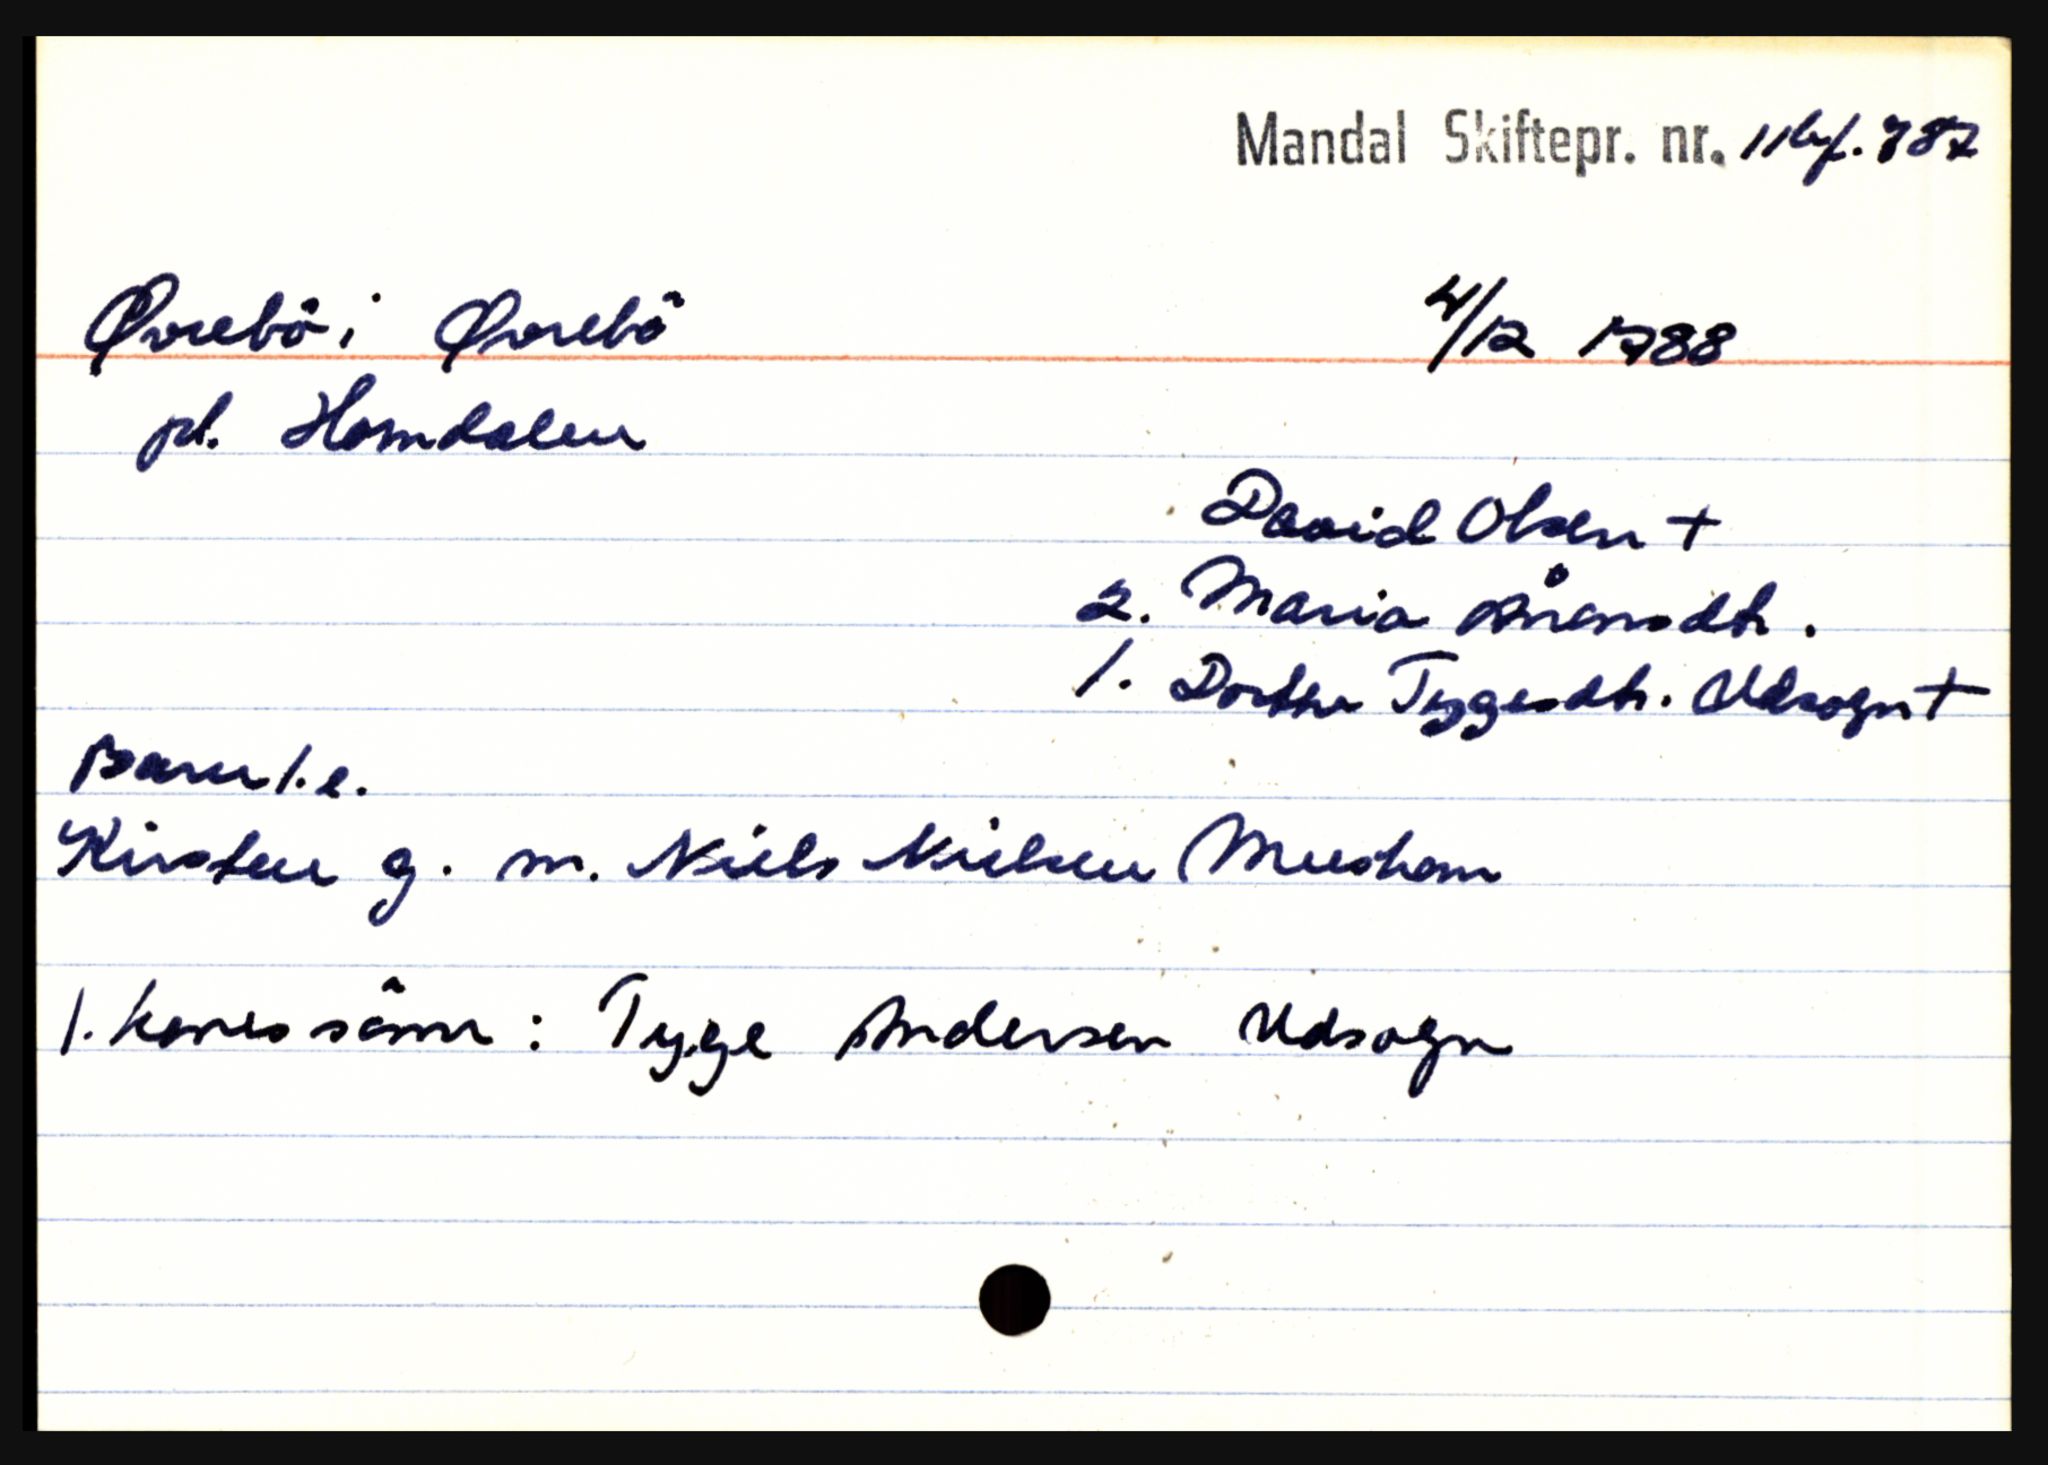 Mandal Skiftepr. nr. 11 bf. 787
Øvrebö i Øvrebö 4/12 1788
pl. Homdalen
David Olsen +
2. Maria Ånensdtr.
1. Dorthe Tygesdtr. Udsogn +
Barn 1. e.
Kirsten g. m. Niels Nielsen Mushom
1. kones sönn : Tyge Andersen Udsogn